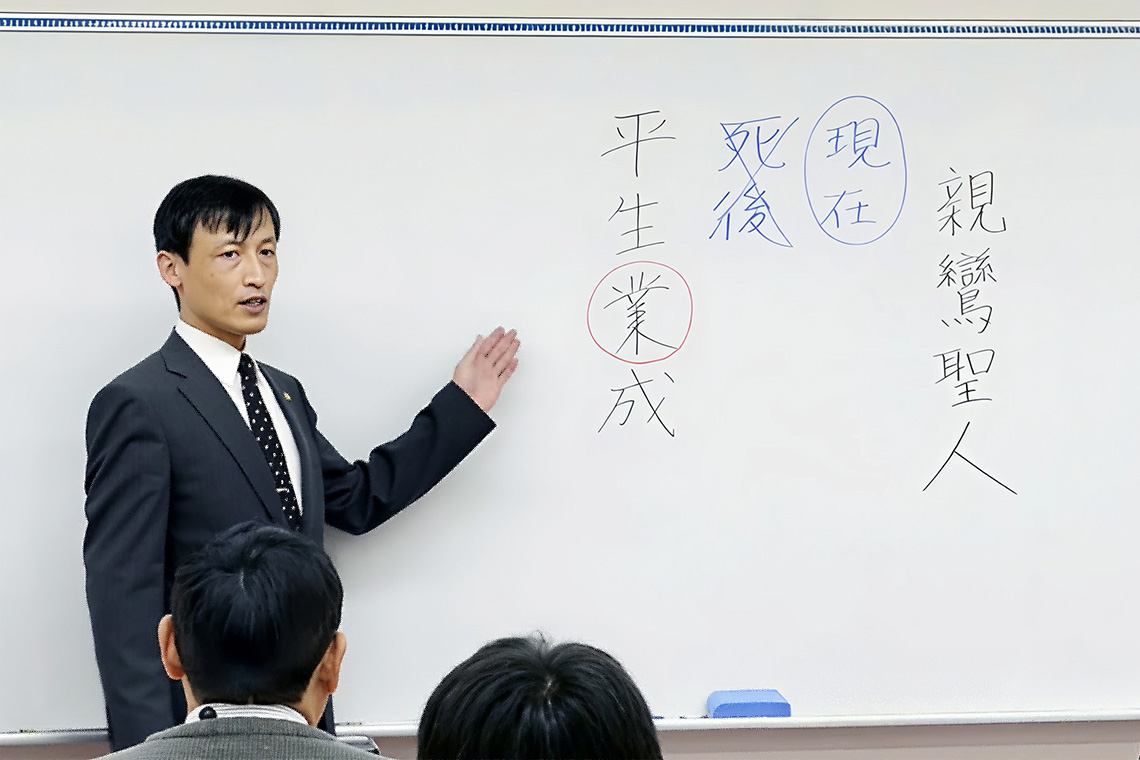 親鸞聖人
現在
死後
平生業成